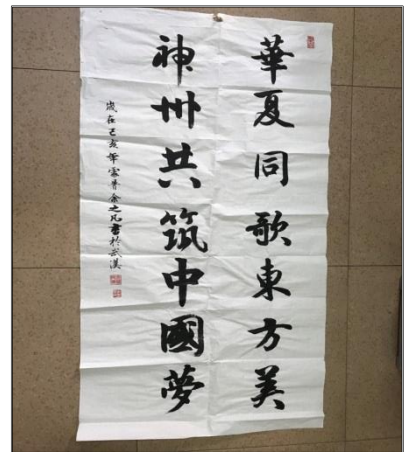 華夏同歌東方美
神州共筑中國夢
歲在己亥年雲普余之凡書於武漢